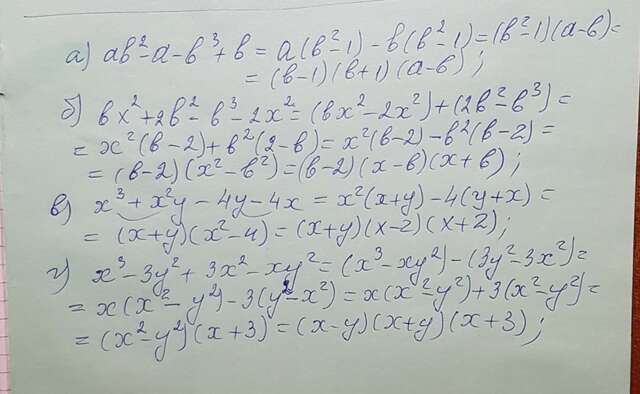 а) ab²-a-b³+b = a(b²-1)-b(b²-1)=(b²-1)(a-b)=
= (b-1)(b+1)(a-b);
б) bx²+2b²-b³-2x²=(bx²-2x²)+(2b²-b³)=
= x²(b-2)+b²(2-b)=x²(b-2)-b²(b-2)=
= (b-2)(x²-b²)=(b-2)(x-b)(x+b);
в) x³+x²y-4y-4x = x²(x+y)-4(y+x)=
= (x+y)(x²-4)=(x+y)(x-2)(x+2);
г) x³-3y²+3x²-xy²=(x³-xy²)-(3y²-3x²)=
= x(x²-y²)-3(y²-x²)=x(x²-y²)+3(x²-y²)=
= (x²-y²)(x+3)=(x-y)(x+y)(x+3);